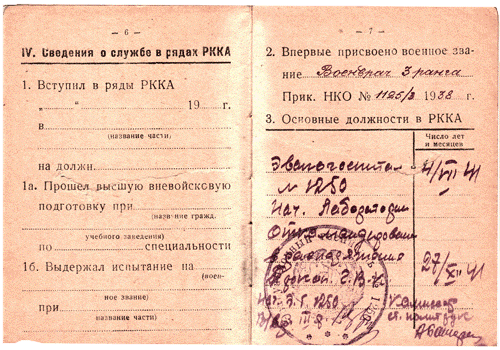 — 6 —
IV. Сведения о службе в рядах РККА
1. Вступил в ряды РККА
„ “ 19 г.
в
(название части)
на должн.
1а. Прошел высшую вневойсковую
подготовку при
(название гражд.
учебного заведения)
по специальности
1б. Выдержал испытание на
(воен-
ное звание)
при
(название части)
— 7 —
2. Впервые присвоено военное зва-
ние Военврач 3 ранга
Прик. НКО № 1125/3 1938 г.
3. Основные должности в РККА
Число лет
и месяцев
Эвакогоспиталь 4/VII 41
№ 1250
Нач. Лаборатории
Откомандирован
в распоряжение 27/XII 41
1250